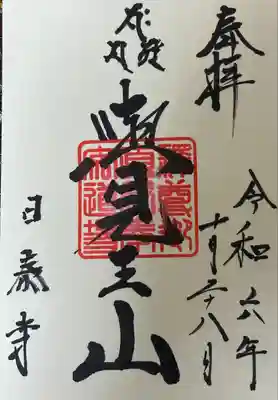 奉拝
令和六年
十月二十八日
覺王山
日泰寺